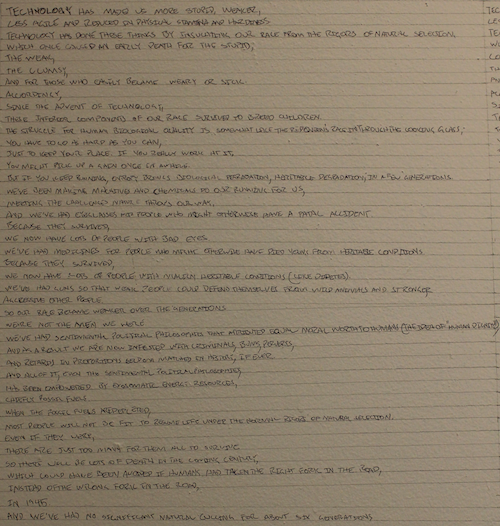 TECHNOLOGY HAS MADE US MORE STUPID, WEAKER,
LESS AGILE AND REDUCED OUR PHYSICAL STAMINA AND HARDINESS.
TECHNOLOGY HAS DONE THESE THINGS BY INSULATING OUR RACE FROM THE RIGORS OF NATURAL SELECTION
WHICH ONCE CAUSED AN EARLY DEATH FOR THE STUPID,
THE WEAK,
THE CLUMSY,
AND FOR THOSE WHO EASILY BECAME WEARY OR SICK.
ACCORDINGLY,
SINCE THE ADVENT OF TECHNOLOGY,
THESE INFERIOR COMPONENTS OF OUR RACE SURVIVED TO BREED CHILDREN.
THE STRUGGLE FOR HUMAN BIOLOGICAL QUALITY IS SOMEWHAT LIKE THE RED QUEEN'S RACE IN THROUGH THE LOOKING GLASS;
YOU HAVE TO GO AS HARD AS YOU CAN,
JUST TO KEEP YOUR PLACE. IF YOU REALLY WORK AT IT,
YOU MIGHT PICK UP A EACH ONCE IN AWHILE.
BUT IF YOU KEEP RUNNING, EFFORT BRINGS BIOLOGICAL DEGRADATION, HERITABLE DEGRADATION, IN A FEW GENERATIONS.
WE'VE BEEN MAKING MACHINES AND CHEMICALS DO OUR RUNNING FOR US,
MEETING THE CHALLENGES NATURE THROWS OUR WAY,
AND WE'VE HAD EYEGLASSES FOR PEOPLE WHO MIGHT OTHERWISE HAVE A FATAL ACCIDENT.
BECAUSE THEY SURVIVED,
WE NOW HAVE LOTS OF PEOPLE WITH BAD EYES.
WE'VE HAD MEDICINES FOR PEOPLE WHO MIGHT OTHERWISE HAVE DIED YOUNG FROM HERITABLE CONDITIONS.
BECAUSE THEY SURVIVED,
WE NOW HAVE LOTS OF PEOPLE WITH HERITABLE CONDITIONS (LIKE DIABETES).
WE'VE HAD GUNS SO THAT WEAK PEOPLE COULD DEFEND THEMSELVES FROM WILD ANIMALS AND STRONGER
AGGRESSIVE OTHER PEOPLE
SO OUR RACE BECAME WEAKER OVER THE GENERATIONS.
WE'RE NOT THE MEN WE WERE
WE'VE HAD SENTIMENTAL POLITICAL PHILOSOPHIES THAT ATTRIBUTED EQUAL MORAL WORTH TO HUMANS (THE IDEA OF "HUMAN RIGHTS")
AND AS A RESULT WE ARE NOW INFESTED WITH CRIMINALS,
AND RETARDS IN PROPORTIONS SELDOM MATCHED IN HISTORY, IF EVER
AND ALL OF IT, EVEN THE SENTIMENTAL POLITICAL PHILOSOPHIES,
HAS BEEN EMPOWERED BY EXPENDABLE ENERGY RESOURCES,
CHIEFLY FOSSIL FUELS.
WHEN THE FOSSIL FUELS ARE DEPLETED,
MOST PEOPLE WILL NOT BE FIT TO RESUME LIFE UNDER THE NORMAL RULES OF NATURAL SELECTION.
EVEN IF THEY WERE,
THERE ARE JUST TOO MANY FOR THEM ALL TO SURVIVE.
SO THERE WILL BE LOTS OF DEATH IN THE COMING CENTURY,
WHICH COULD HAVE BEEN AVOIDED IF HUMANS HAD TAKEN THE RIGHT FORK IN THE ROAD,
INSTEAD OF THE WRONG FORK IN THE ROAD,
IN 1945.
AND WE'VE HAD NO SIGNIFICANT NATURAL CULLING FOR ABOUT SIX GENERATIONS